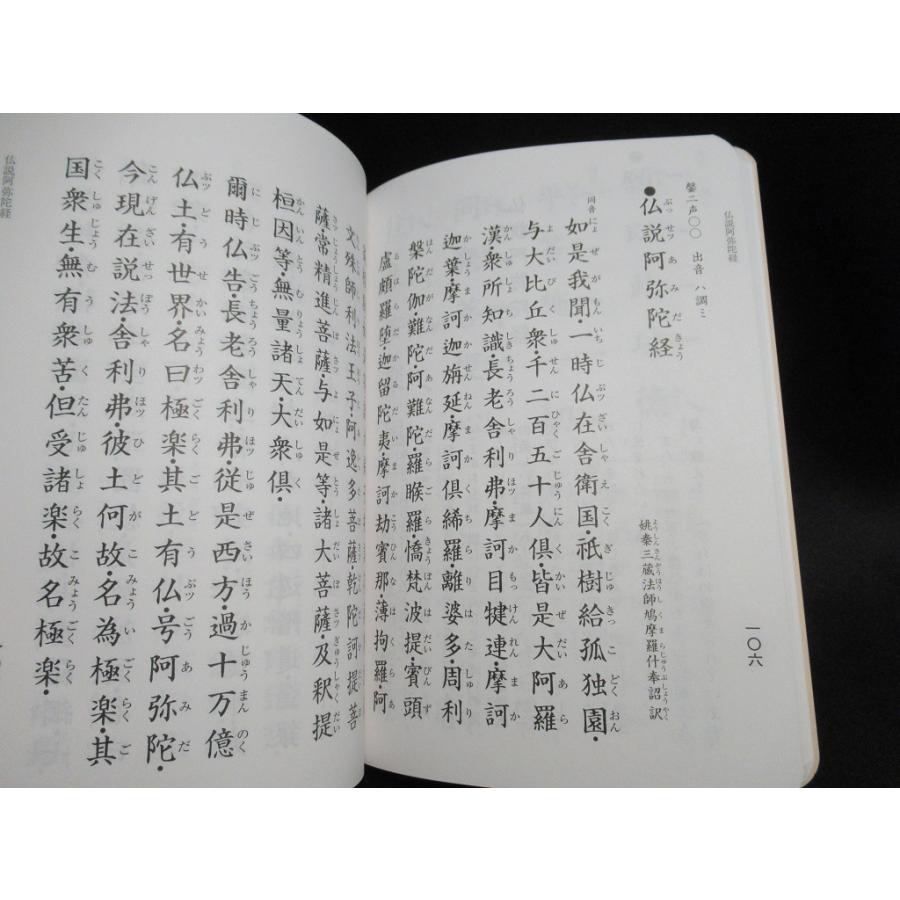 仏説阿弥陀経
一〇六
磬二声〇〇 出音 ハ調ミ
●仏説阿弥陀経
姚秦三蔵法師鳩摩羅什奉詔訳
同音
如是我聞・一時仏在舎衛国祇樹給孤独園・
与大比丘衆・千二百五十人倶・皆是大阿羅
漢衆所知識・長老舎利弗・摩訶目犍連・摩訶
迦葉・摩訶迦旃延・摩訶倶絺羅・離婆多・周利
槃陀伽・難陀・阿難陀・羅睺羅・憍梵波提・賓頭
盧頗羅堕・迦留陀夷・摩訶劫賓那・薄拘羅・阿
文殊師利法王子・阿逸多菩薩・乾陀訶提菩
薩・常精進菩薩・与如是等・諸大菩薩・及釈提
桓因等・無量諸天・大衆倶・
爾時仏告・長老舎利弗・従是西方・過十万億
仏土・有世界・名曰極楽・其土有仏・号阿弥陀・
今現在説法・舎利弗・彼土何故・名為極楽・其
国衆生・無有衆苦・但受諸楽・故名極楽・
仏説阿弥陀経